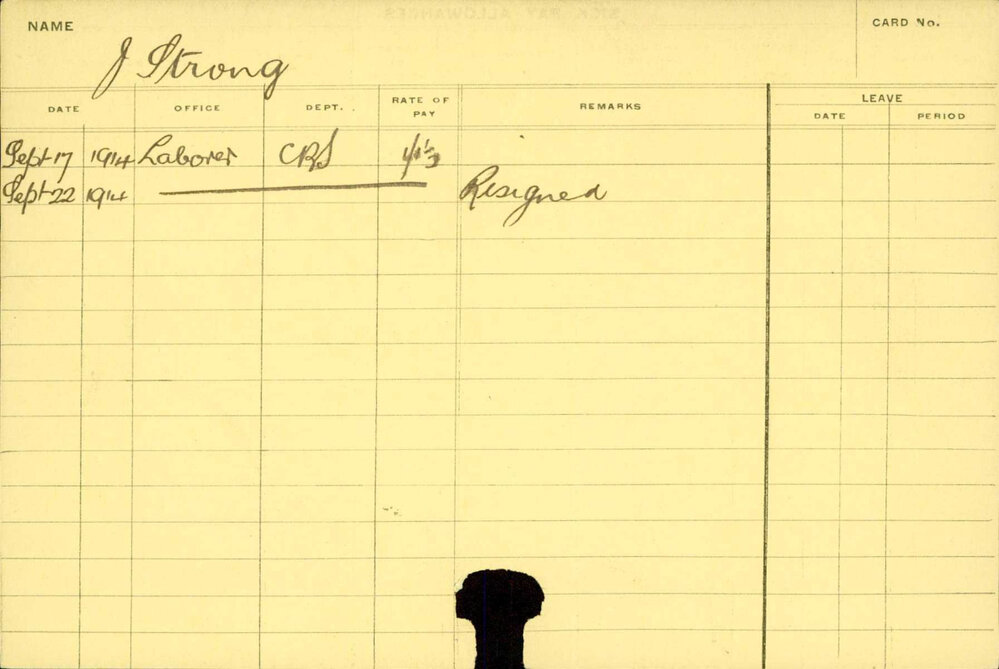 NAME
J Strong
CARD No.
DATE OFFICE DEPT. RATE OF PAY REMARKS LEAVE
DATE PERIOD
Sept 17 1914 Laborer CRS
Sept 22 1914 Resigned